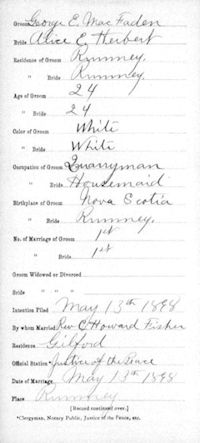 Groom George E. MacFaden
Bride Alice E. Herbert
Residence of Groom Rumney,
" Bride Rumney,
Age of Groom 24
" Bride 24
Color of Groom White
" Bride White
Occupation of Groom Quarryman
" Bride Housemaid
Birthplace of Groom Nova Scotia
" Bride Rumney,
No. of Marriage of Groom 1st
" " Bride 1st
Groom Widowed or Divorced
Bride " " "
Intention Filed May 13th 1898
By whom Married Rev. C. Howard Fisher
Residence Gilford
Official Station *Justice of the Peace
Date of Marriage May 13th 1898
Place Rumney
[Record continued over.]
*Clergyman, Notary Public, Justice of the Peace, etc.